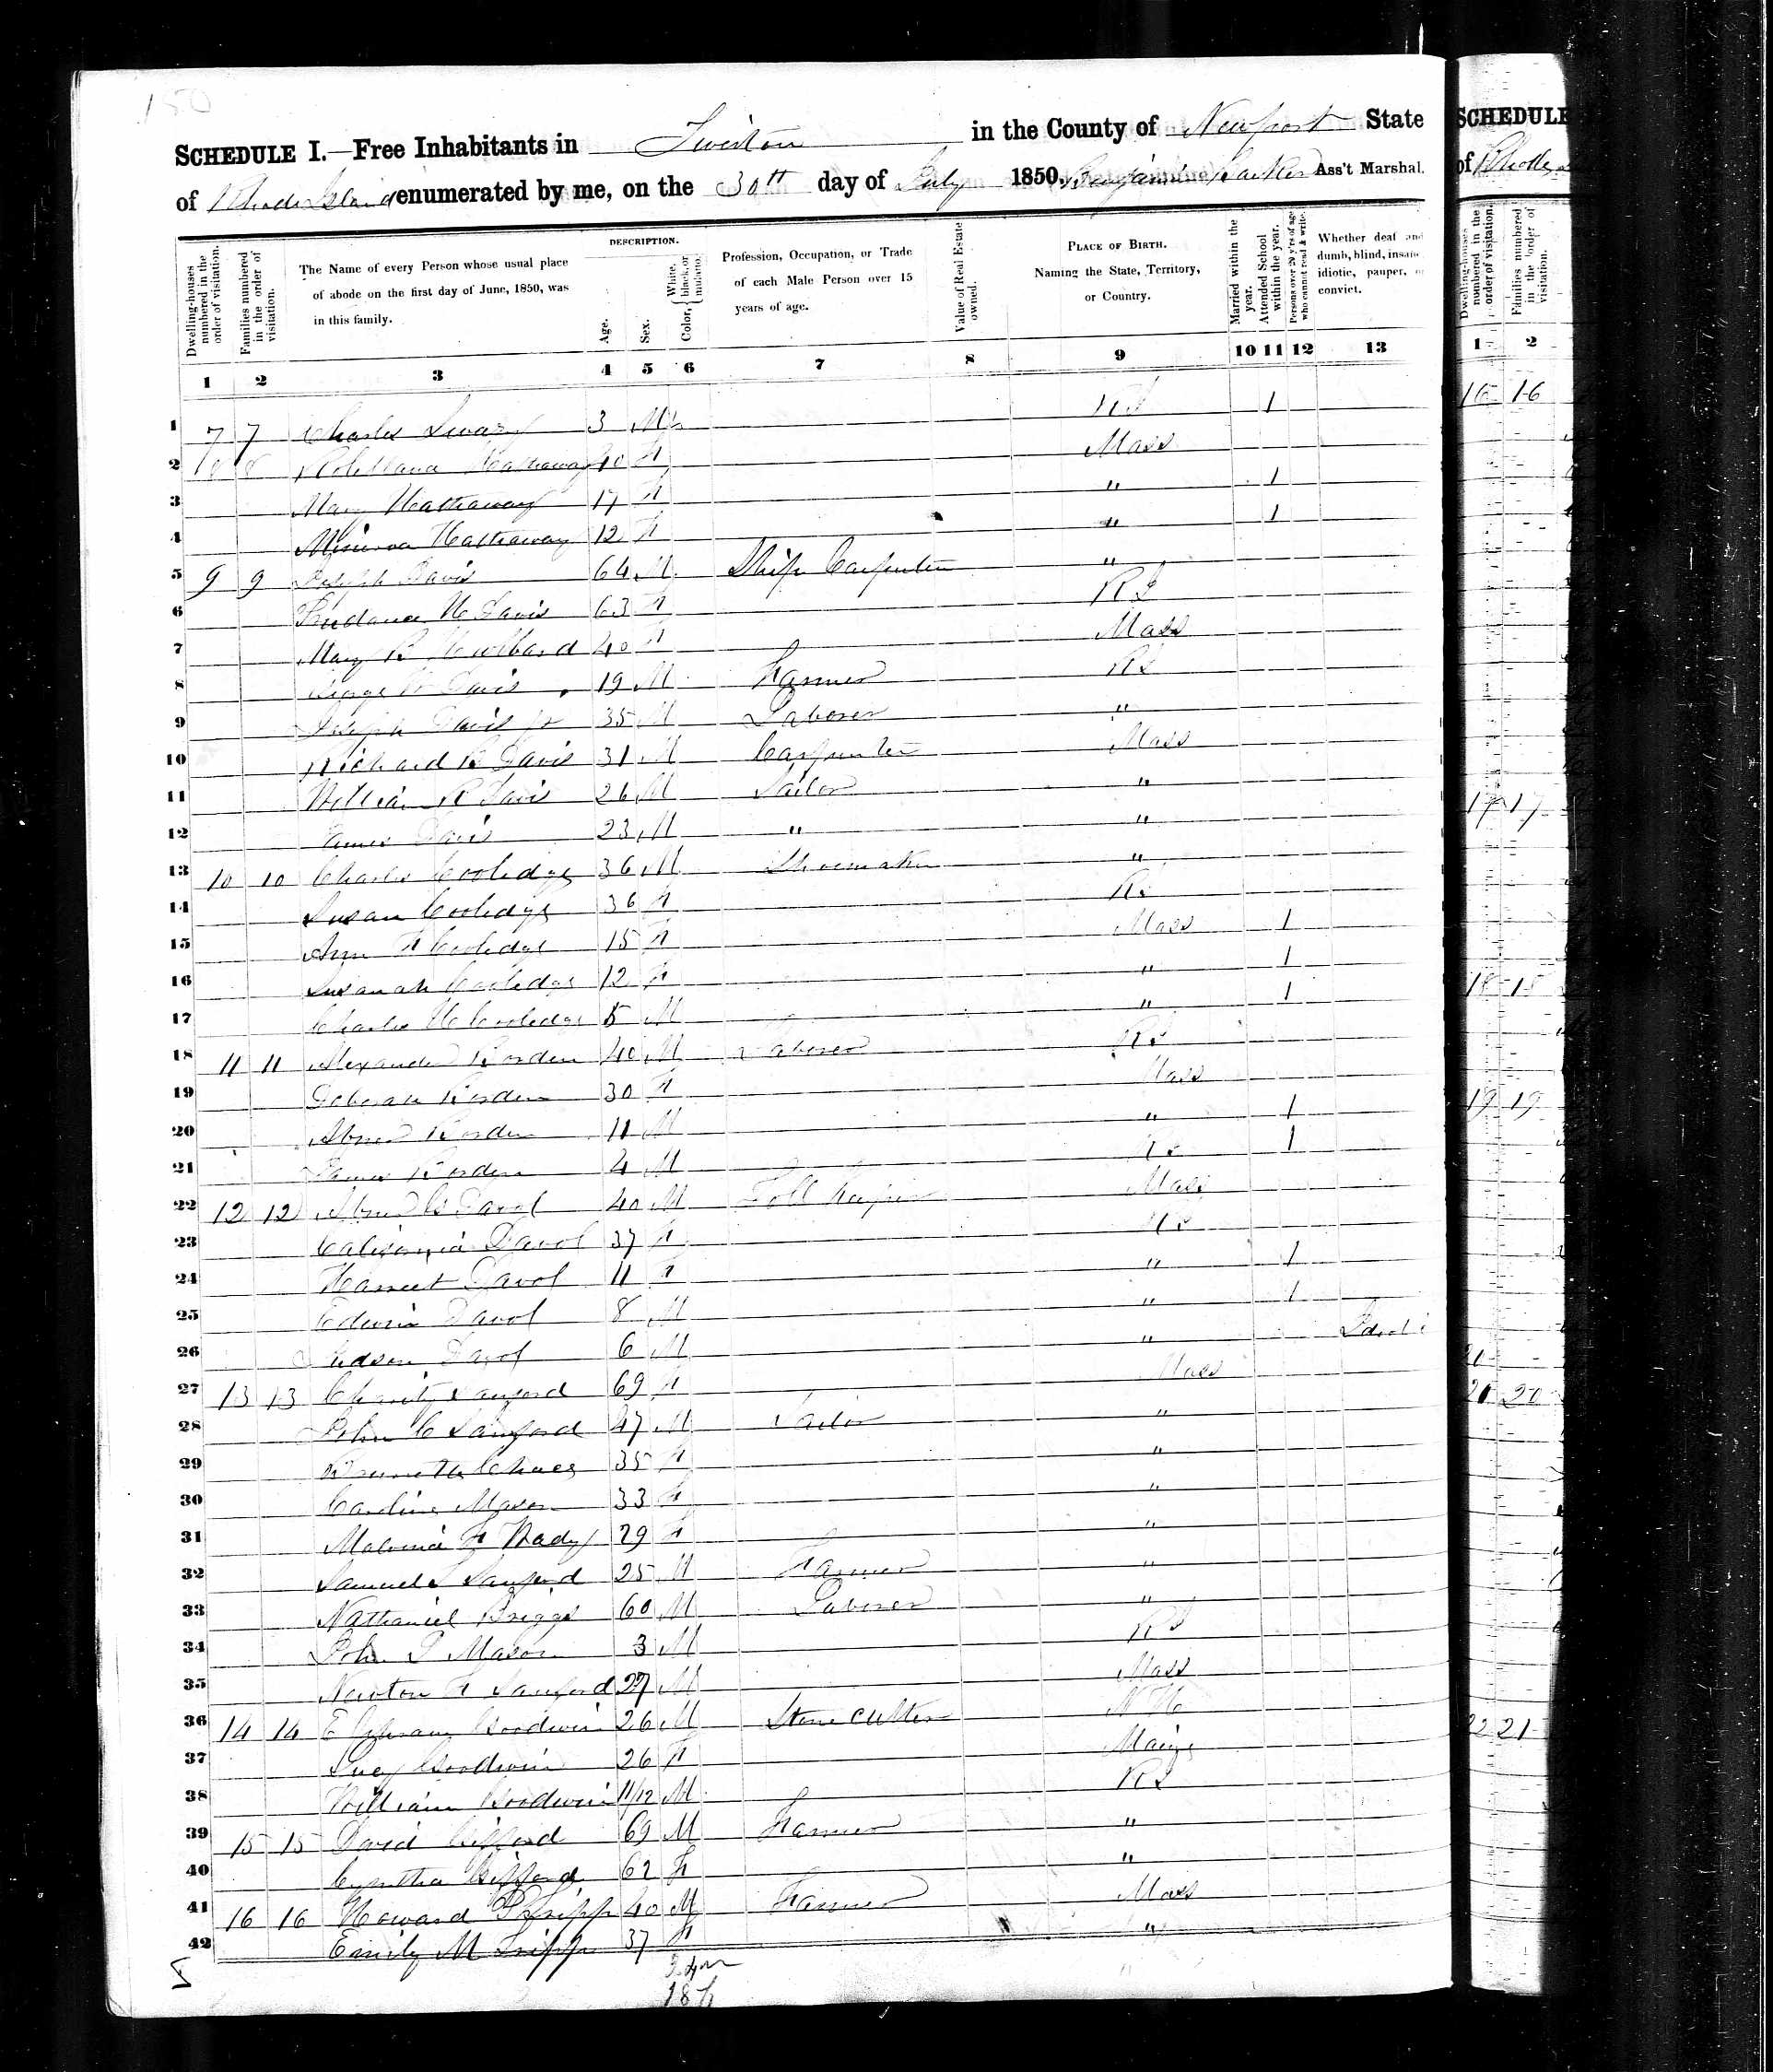 150
SCHEDULE I.—Free Inhabitants in Tiverton in the County of Newport State
of Rhode Island enumerated by me, on the 30th day of July 1850. Benjamin Barker Ass't Marshal.
Dwelling-houses numbered in the order of visitation.
Families numbered in the order of visitation.
The Name of every Person whose usual place of abode on the first day of June, 1850, was in this family.
DESCRIPTION.
Age.
Sex.
Color, { White, black, or mulatto.
Profession, Occupation, or Trade of each Male Person over 15 years of age.
Value of Real Estate owned.
PLACE OF BIRTH. Naming the State, Territory, or Country.
Married within the year.
Attended School within the year.
Persons over 20 y'rs of age who cannot read & write.
Whether deaf and dumb, blind, insane, idiotic, pauper, or convict.
1 2 3 4 5 6 7 8 9 10 11 12 13
1 7 7 Charles 3 M RI 1
2 8 8 Hathaway 40 F Mass
3 Mary Hathaway 17 F " 1
4 Minerva Hathaway 12 F " 1
5 9 9 Joseph Davis 64 M Ship Carpenter "
6 Prudance H Davis 63 F RI
7 Mary B Hubbard 40 F Mass
8 George W Davis 19 M Farmer RI
9 Joseph Davis Jr 35 M Laborer "
10 Richard B Davis 31 M Carpenter Mass
11 William R Davis 26 M Sailor "
12 James Davis 23 M " "
13 10 10 Charles Cooledge 36 M Shoemaker "
14 Susan Cooledge 36 F RI
15 Ann F Cooledge 15 F Mass 1
16 Susanah Cooledge 12 F " 1
17 Charles H Cooledge 5 M " 1
18 11 11 Alexander Borden 40 M Laborer RI
19 Deborah Borden 30 F Mass
20 Abner Borden 11 M " 1
21 James Borden 4 M RI 1
22 12 12 Abner Davol 40 M Toll Keeper Mass
23 Davol 37 F RI
24 Harriet Davol 11 F " 1
25 Edwin Davol 8 M " 1
26 Judson Davol 6 M " Idioti
27 13 13 Charity Sanford 69 F Mass
28 John C Sanford 47 M Sailor "
29 35 F "
30 Caroline Mason 33 F "
31 Malvina F Wady 29 F "
32 Samuel S Sanford 25 M Farmer "
33 Nathaniel Briggs 60 M Laborer "
34 John P Mason 3 M RI
35 Newton F Sanford 27 M Mass
36 14 14 Ephraim Goodwin 26 M Stone Cutter N H
37 Lucy Goodwin 26 F Maine
38 William Goodwin 11/12 M RI
39 15 15 David Gifford 69 M Farmer "
40 Cynthia Gifford 62 F "
41 16 16 Howard Tripp 40 M Farmer Mass
42 Emily M Tripp 37 F "
24 m
18 f
SCHEDULE
of Rhode
Dwelling-houses numbered in the order of visitation.
Families numbered in the order of visitation.
1 2
16 16
17 17
18 18
19 19
21
21 20
22 21